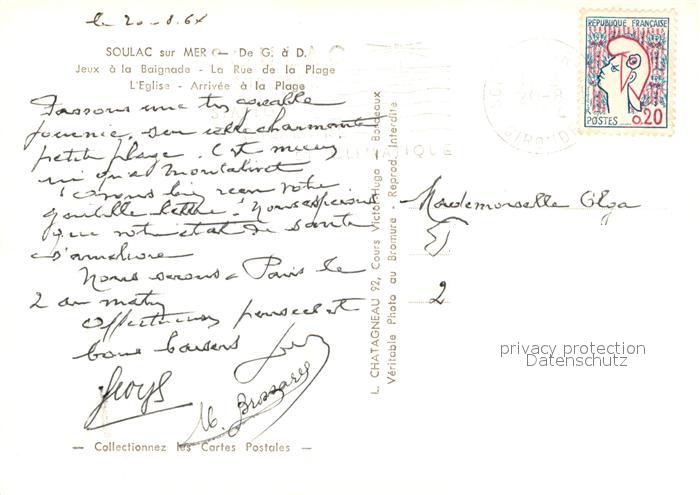 le 20-8.64
SOULAC sur MER — De G. à D.
Jeux à la Baignade - La Rue de la Plage
L'Eglise - Arrivée à la Plage
REPUBLIQUE FRANÇAISE
POSTES 0,20
Passons une très agréable
journée, sur cette charmante
petite plage. C'est mieux
qu'a Montalivet
reçu votre
gentille lettre. Nous espérons
que votre état de santé
s'améliore
Nous serons a Paris le
2 au matin
Affectueuses pensées et
bons baisers
M. Brossard
Mademoiselle Olga
2
L. CHATAGNEAU 92, Cours Victor-Hugo Bordeaux
Véritable Photo au Bromure - Reprod. Interdite
privacy protection
Datenschutz
— Collectionnez les Cartes Postales —